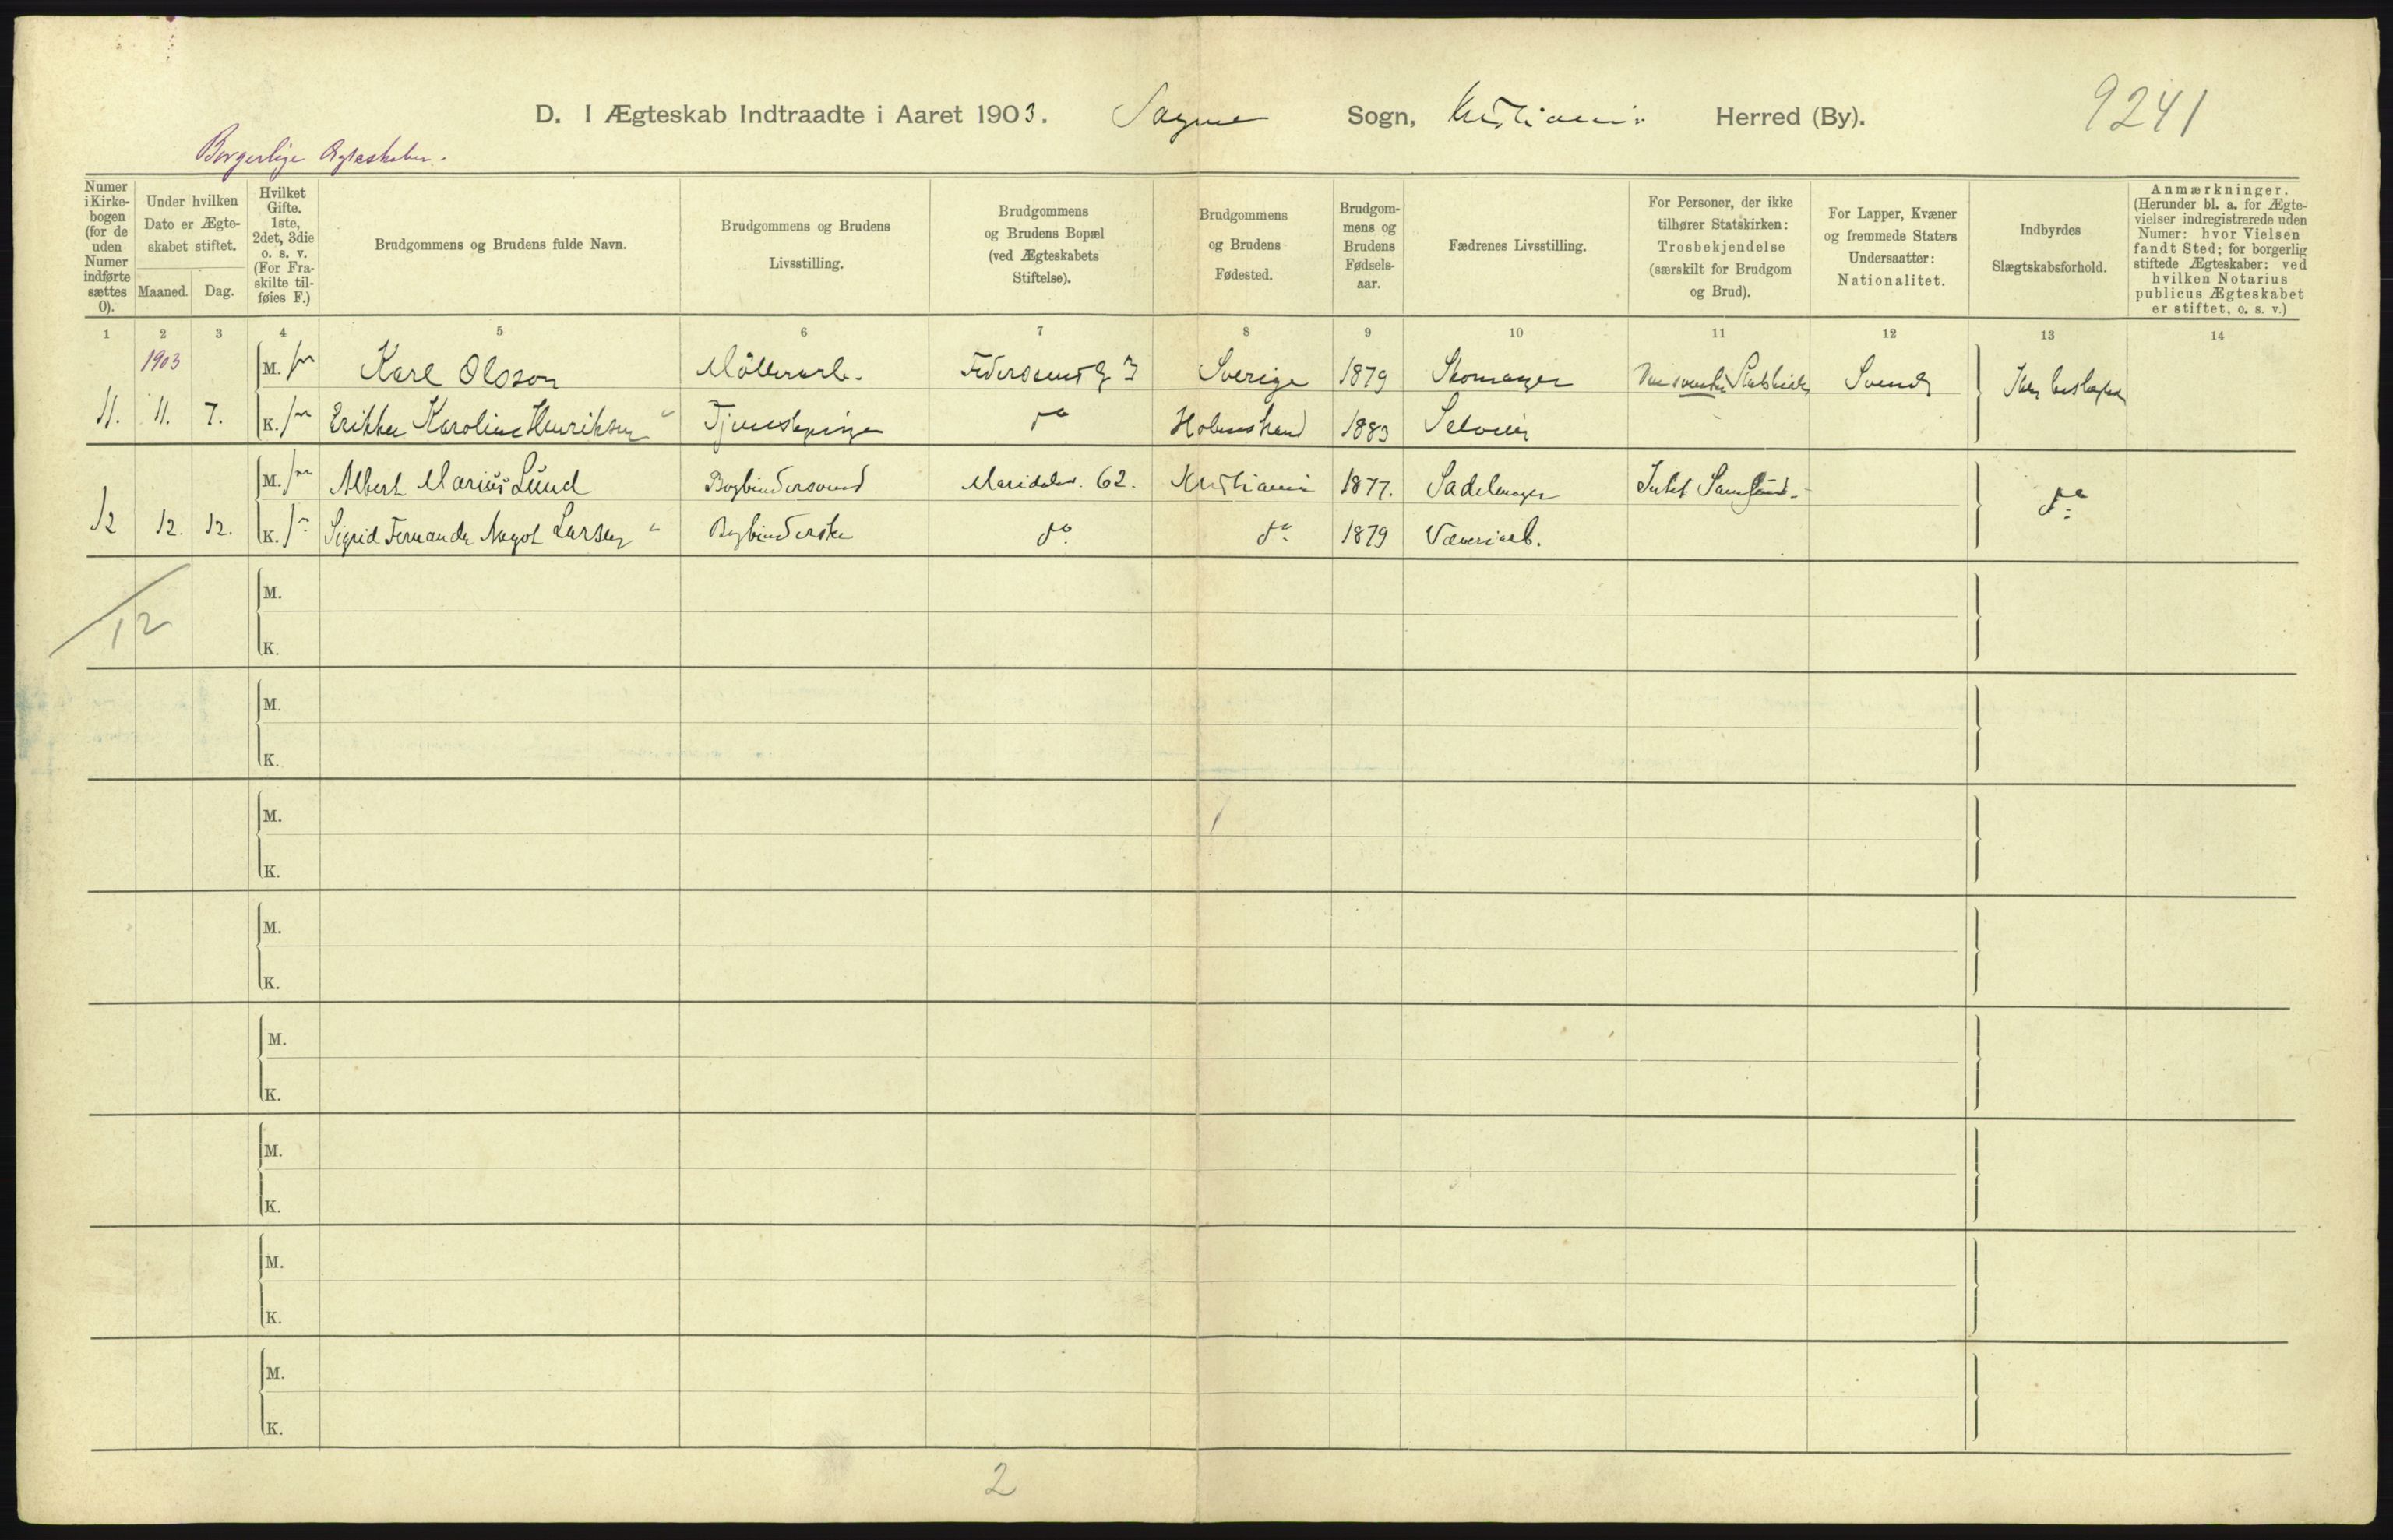 D. I Ægteskab Indtraadte i Aaret 1903. Sagene Sogn, Kristiania Herred (By). 9241
Borgerlige Ægteskaber.
Numer i Kirke- bogen (for de uden Numer indførte sættes 0).
Under hvilken Dato er Ægte- skabet stiftet.
Maaned. Dag.
Hvilket Gifte. 1ste, 2det, 3die o. s. v. (For Fra- skilte til- føies F.)
Brudgommens og Brudens fulde Navn.
Brudgommens og Brudens Livsstilling.
Brudgommens og Brudens Bopæl (ved Ægteskabets Stiftelse).
Brudgommens og Brudens Fødested.
Brudgom- mens og Brudens Fødsels- aar.
Fædrenes Livsstilling.
For Personer, der ikke tilhører Statskirken: Trosbekjendelse (særskilt for Brudgom og Brud).
For Lapper, Kvæner og fremmede Staters Undersaatter: Nationalitet.
Indbyrdes Slægtskabsforhold.
Anmærkninger. (Herunder bl. a. for Ægte- vielser indregistrerede uden Numer: hvor Vielsen fandt Sted; for borgerlig stiftede Ægteskaber: ved hvilken Notarius publicus Ægteskabet er stiftet, o. s. v.)
1 2 3 4 5 6 7 8 9 10 11 12 13 14
1903 M. Karl Olsson Möllerarb. 3 Sverige 1879 Skomager Den svenske Statskirke Svensk Ikke beslægtede
11. 11. 7. K. Erikka Karoline Henriksen Tjenestepige do Holmestrand 1883
M. Albert Marius Lund Bogbindersvend Maridalsv. 62. Kristiania 1877. Sadelmager Intet Samfund.
12 12. 12. K. Sigrid Fernanda Nagot Larsen Bogbinderske do do 1879 Væveriarb. do
12
M.
K.
M.
K.
M.
K.
M.
K.
M.
K.
M.
K.
M.
K.
M.
K.
2